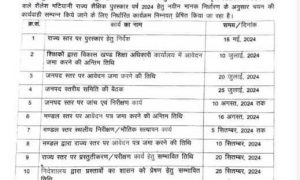 वाले शैलेश मटियानी राज्य शैक्षिक पुरस्कार वर्ष 2024 हेतु नवीन मानक निर्धारण के अनुसार चयन की
कार्यवाही सम्पन्न किये जाने के लिए निर्धारित कार्यक्रम निम्नवत् प्रेषित किया जा रहा है।
क्र.सं. कार्य का नाम समय / दिनांक
1 राज्य स्तर पर पुरस्कार हेतु निर्देश 15 मई, 2024
2 शिक्षकों द्वारा विकास खण्ड शिक्षा अधिकारी कार्यालय में आवेदन जमा करने की अन्तिम तिथि 10 जुलाई, 2024
3 जनपद स्तर पर आवेदन जमा करने की तिथि 20 जुलाई, 2024
4 जनपद स्तरीय समिति की बैठक 25 जुलाई, 2024
5 जनपद स्तर पर जांच एवं निरीक्षण कार्य 10 अगस्त, 2024 तक
6 मण्डल स्तर पर आवेदन पत्र जमा करने की अन्तिम तिथि 16 अगस्त, 2024
7 मण्डल स्तरीय निरीक्षण/भौतिक सत्यापन कार्य 5 सितम्बर, 2024 तक
8 मण्डल द्वारा राज्य स्तर पर आवेदन पत्र जमा करने की तिथि 10 सितम्बर, 2024
9 राज्य स्तर पर प्रस्तुतीकरण/परीक्षण कार्य हेतु सम्भावित तिथि 20 सितम्बर, 2024
10 निदेशालय द्वारा प्रस्तावों का शासन को प्रेषण हेतु सम्भावित तिथि 25 सितम्बर, 2024